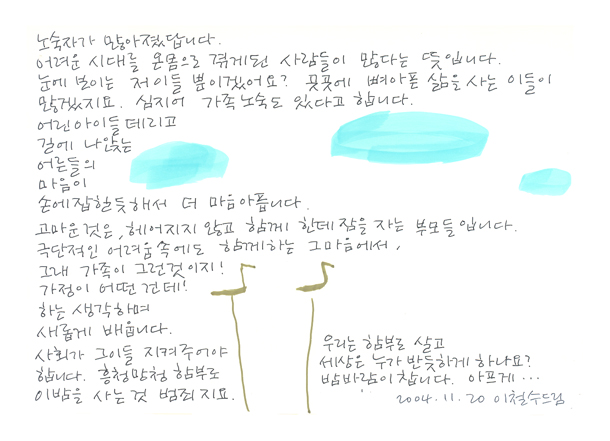 노숙자가 많아졌답니다.
어려운 시대를 온몸으로 겪게된 사람들이 많다는 뜻입니다.
눈에 보이는 저이들 뿐이겠어요? 곳곳에 뼈아픈 삶을 사는 이들이
많겠지요. 심지어 가족노숙도 있다고 합니다.
어린아이들 데리고
길에 나앉는
어른들의
마음이
손에잡힐듯해서 더 마음아픕니다.
고마운것은, 헤어지지 않고 함께 한데잠을 자는 부모들입니다.
극단적인 어려움속에도 함께하는 그마음에서,
그래 가족이 그런것이지!
가정이 어떤건데!
하는 생각하며
새롭게 배웁니다.
사회가 그이들 지켜주어야
합니다. 흥청망청 함부로
이밤을 사는것 범죄지요.
우리는 함부로 살고
세상은 누가 반듯하게 하나요?
밤바람이 찹니다. 아프게…
2004.11.20 이철수드림